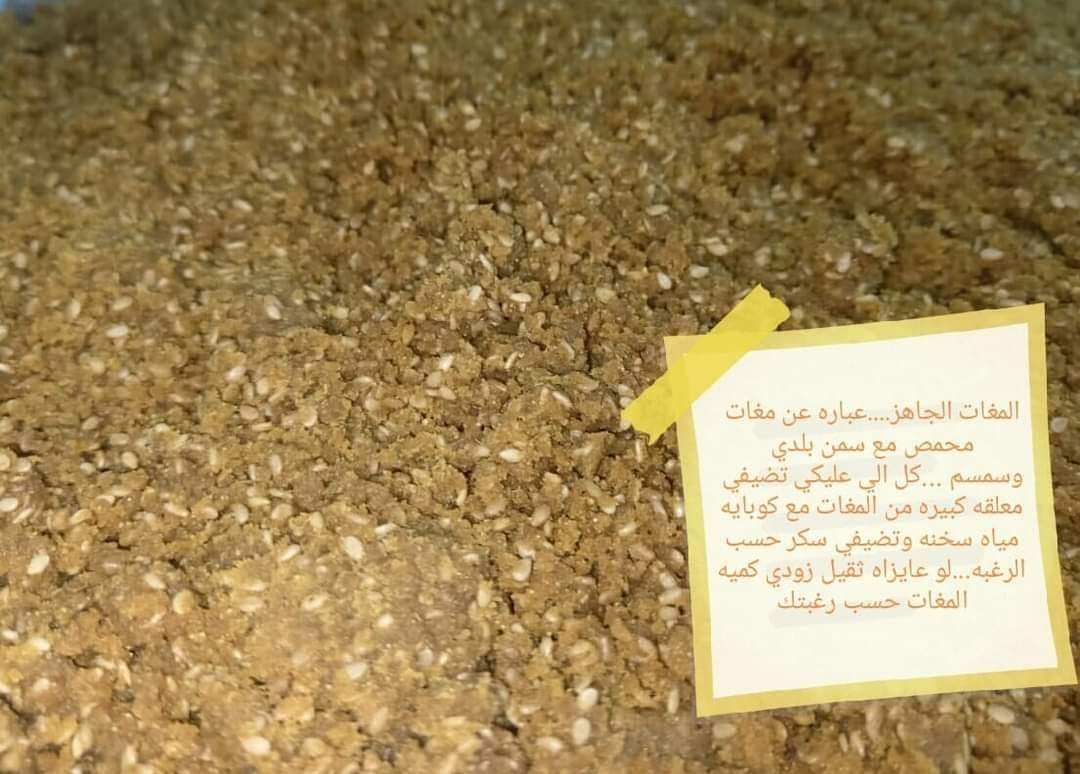 المغات الجاهز....عباره عن مغات
محمص مع سمن بلدي
وسمسم ...كل الي عليكي تضيفي
معلقه كبيره من المغات مع كوبايه
مياه سخنه وتضيفي سكر حسب
الرغبه...لو عايزاه ثقيل زودي كميه
المغات حسب رغبتك